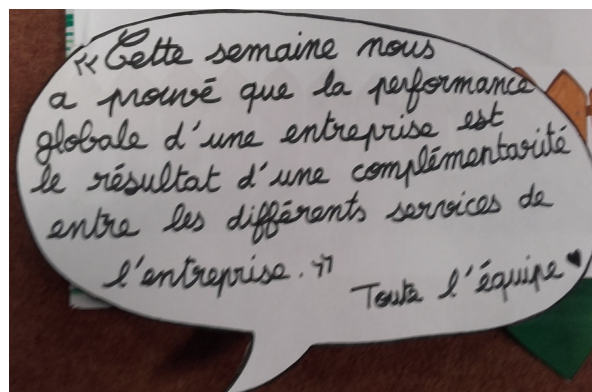 « Cette semaine nous
a prouvé que la performance
globale d'une entreprise est
le résultat d'une complémentarité
entre les différents services de
l'entreprise. »
Toute l'équipe ♥